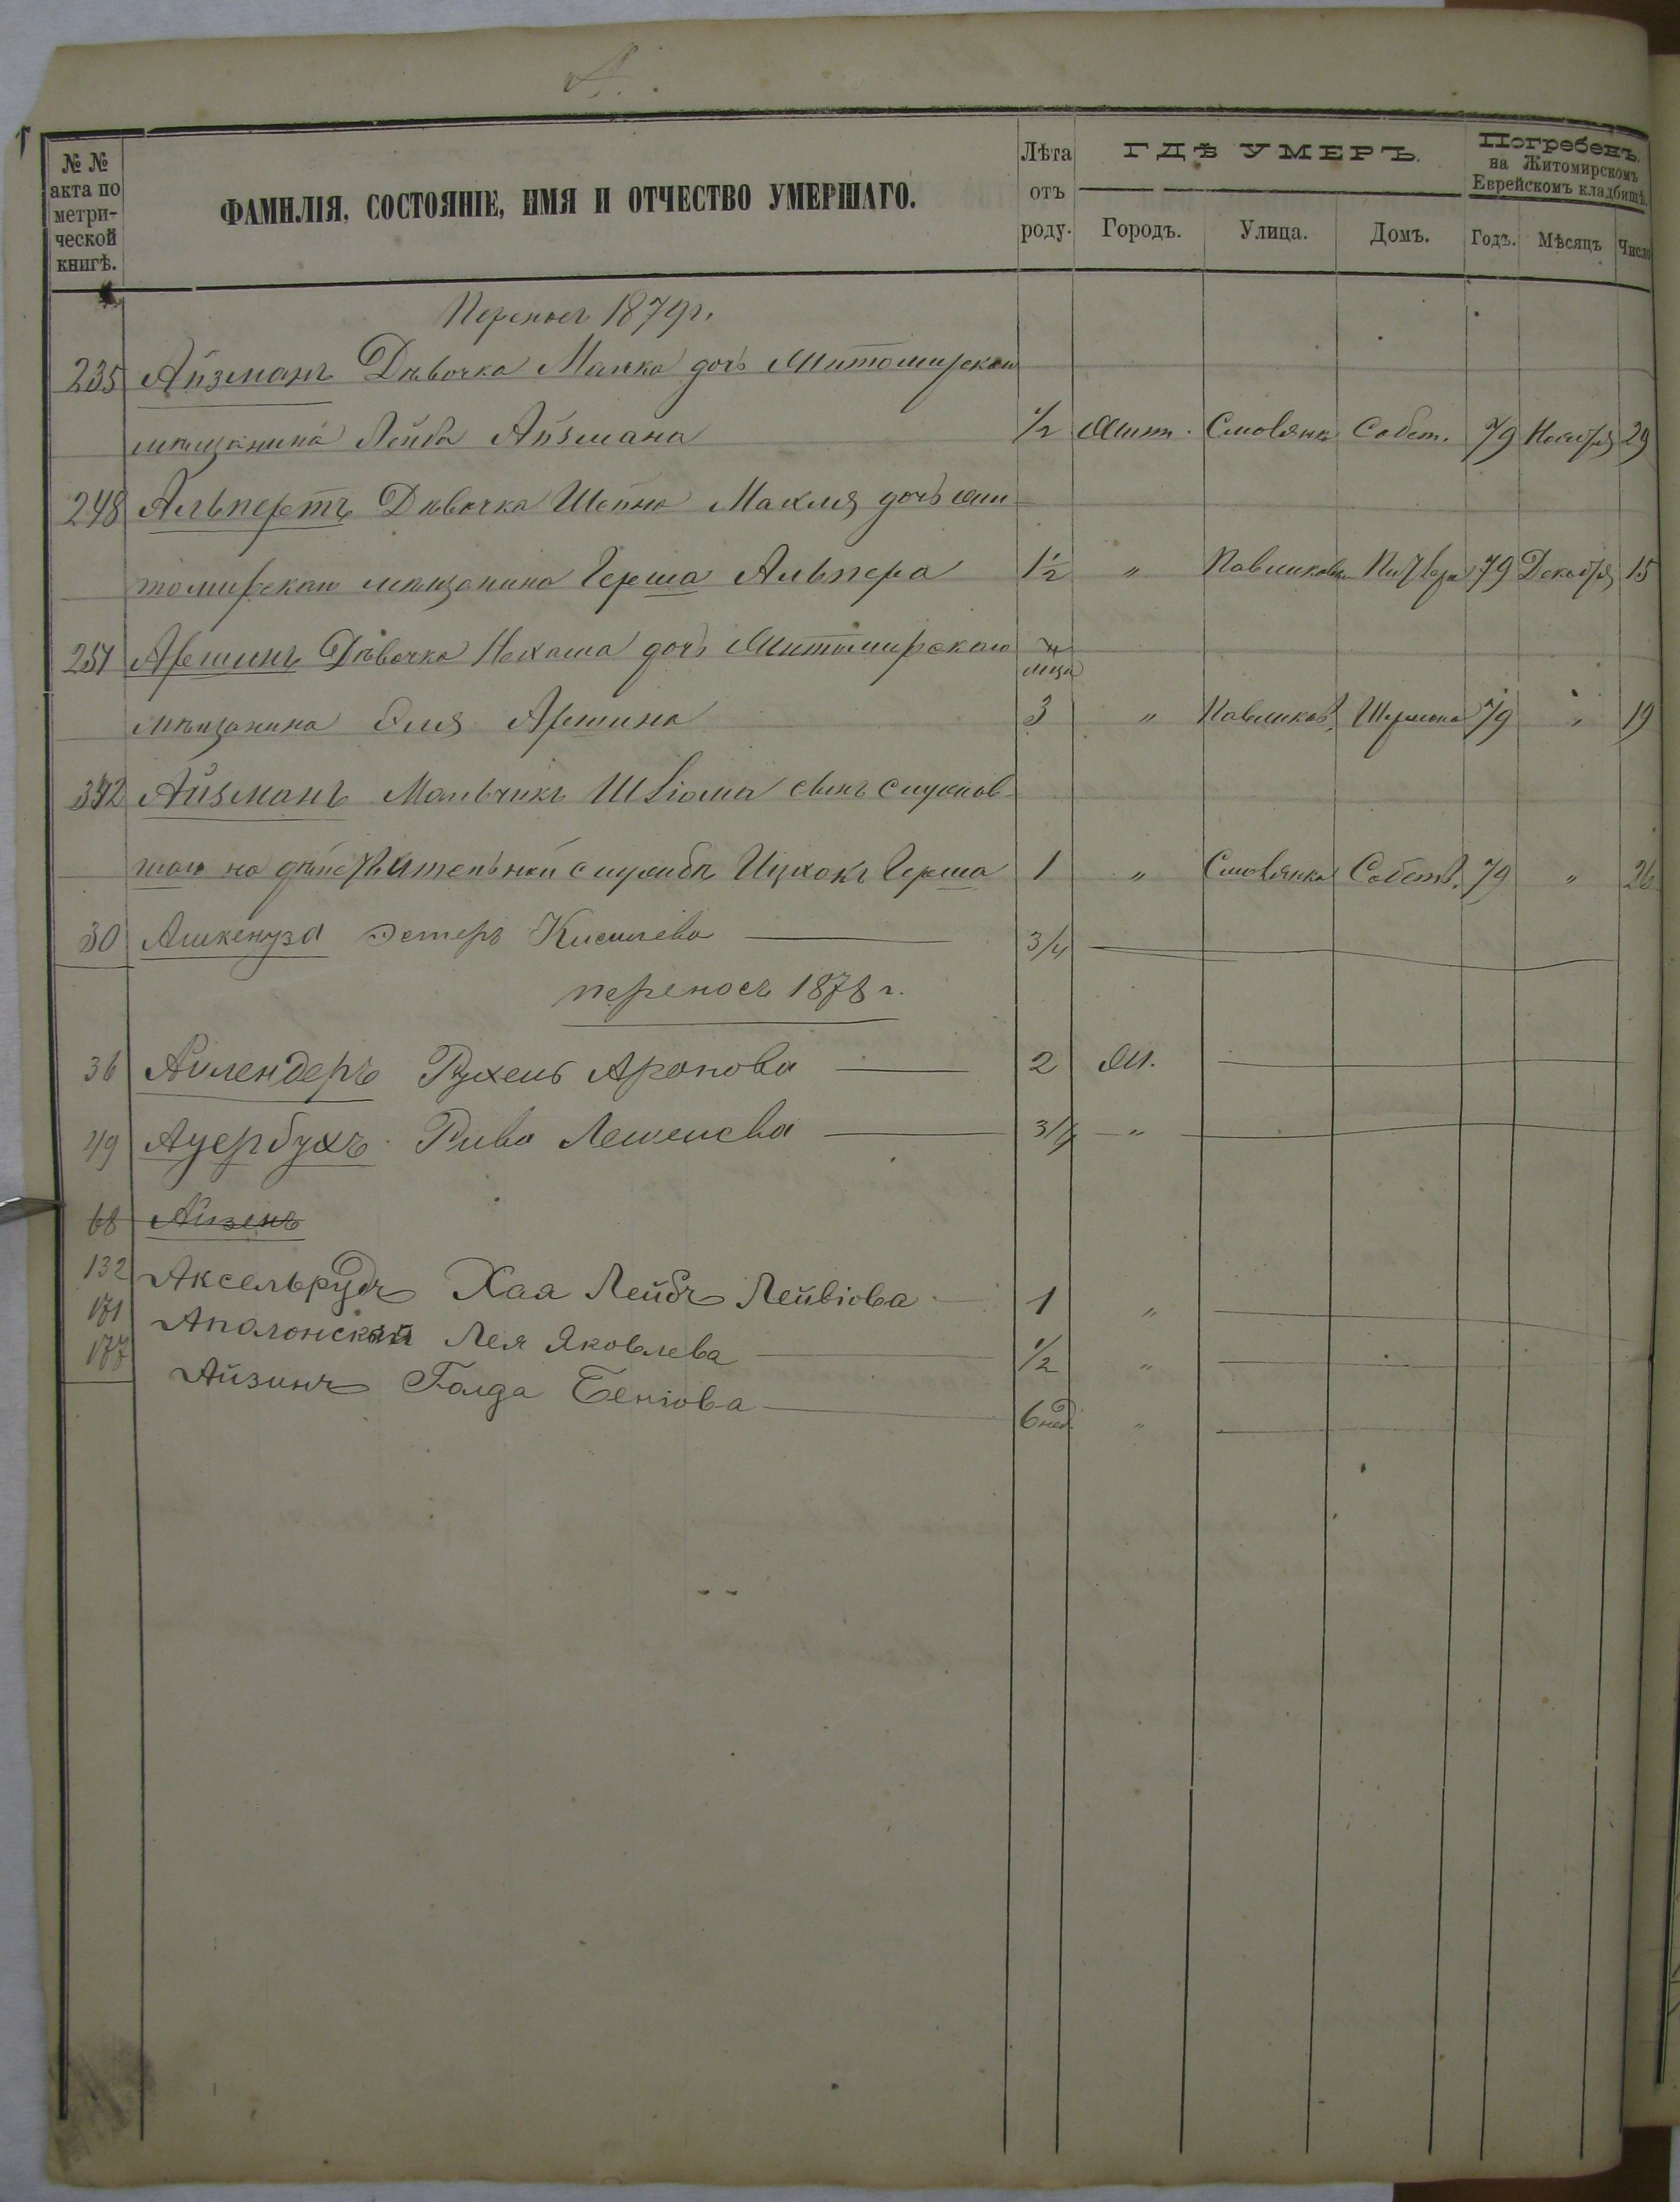 А.
№ №
акта по
метри-
ческой
книгѣ.
ФАМИЛІЯ, СОСТОЯНІЕ, ИМЯ И ОТЧЕСТВО УМЕРШАГО.
Лѣта
отъ
роду.
ГДѢ УМЕРЪ.
Городъ. Улица. Домъ.
Погребенъ
на Житомирскомъ
Еврейскомъ кладбищѣ.
Годъ. Мѣсяцъ Число
Переносъ 1879 г.
235 Айзманъ Дѣвочка Малка дочь Житомирскаго
мѣщанина Лейба Айзмана 1/2 Жит. Смолянка Собст. 79 Ноября 29
248 Альпертъ Дѣвочка Шейна Махля дочь жи-
томирскаго мѣщанина Герша Альпера 1 1/2 " 79 Декабря 15
251 Аршинъ Дѣвочка Нехама дочь Житомирскаго
мѣщанина Эля Аршина 3 " Павликов. 79 " 19
372 Айзманъ Мальчикъ Шліома сынъ
на дѣйствительной службѣ Ицхокъ Герша 1 " Смолянка Собств. 79 " 26
30 Ашкенуза Эстеръ 3/4
переносъ 1878 г.
36 Айлендеръ Рухель Аронова 2 Ж.
49 Ауербухъ Рива 3/4 "
68 Айзенъ
132 Аксельрудъ Хая Лейбъ Лейвіова 1 "
171 Аполонскій Лея Яковлева 1/2 "
177 Айзинъ Голда Беніова 6 нед. "